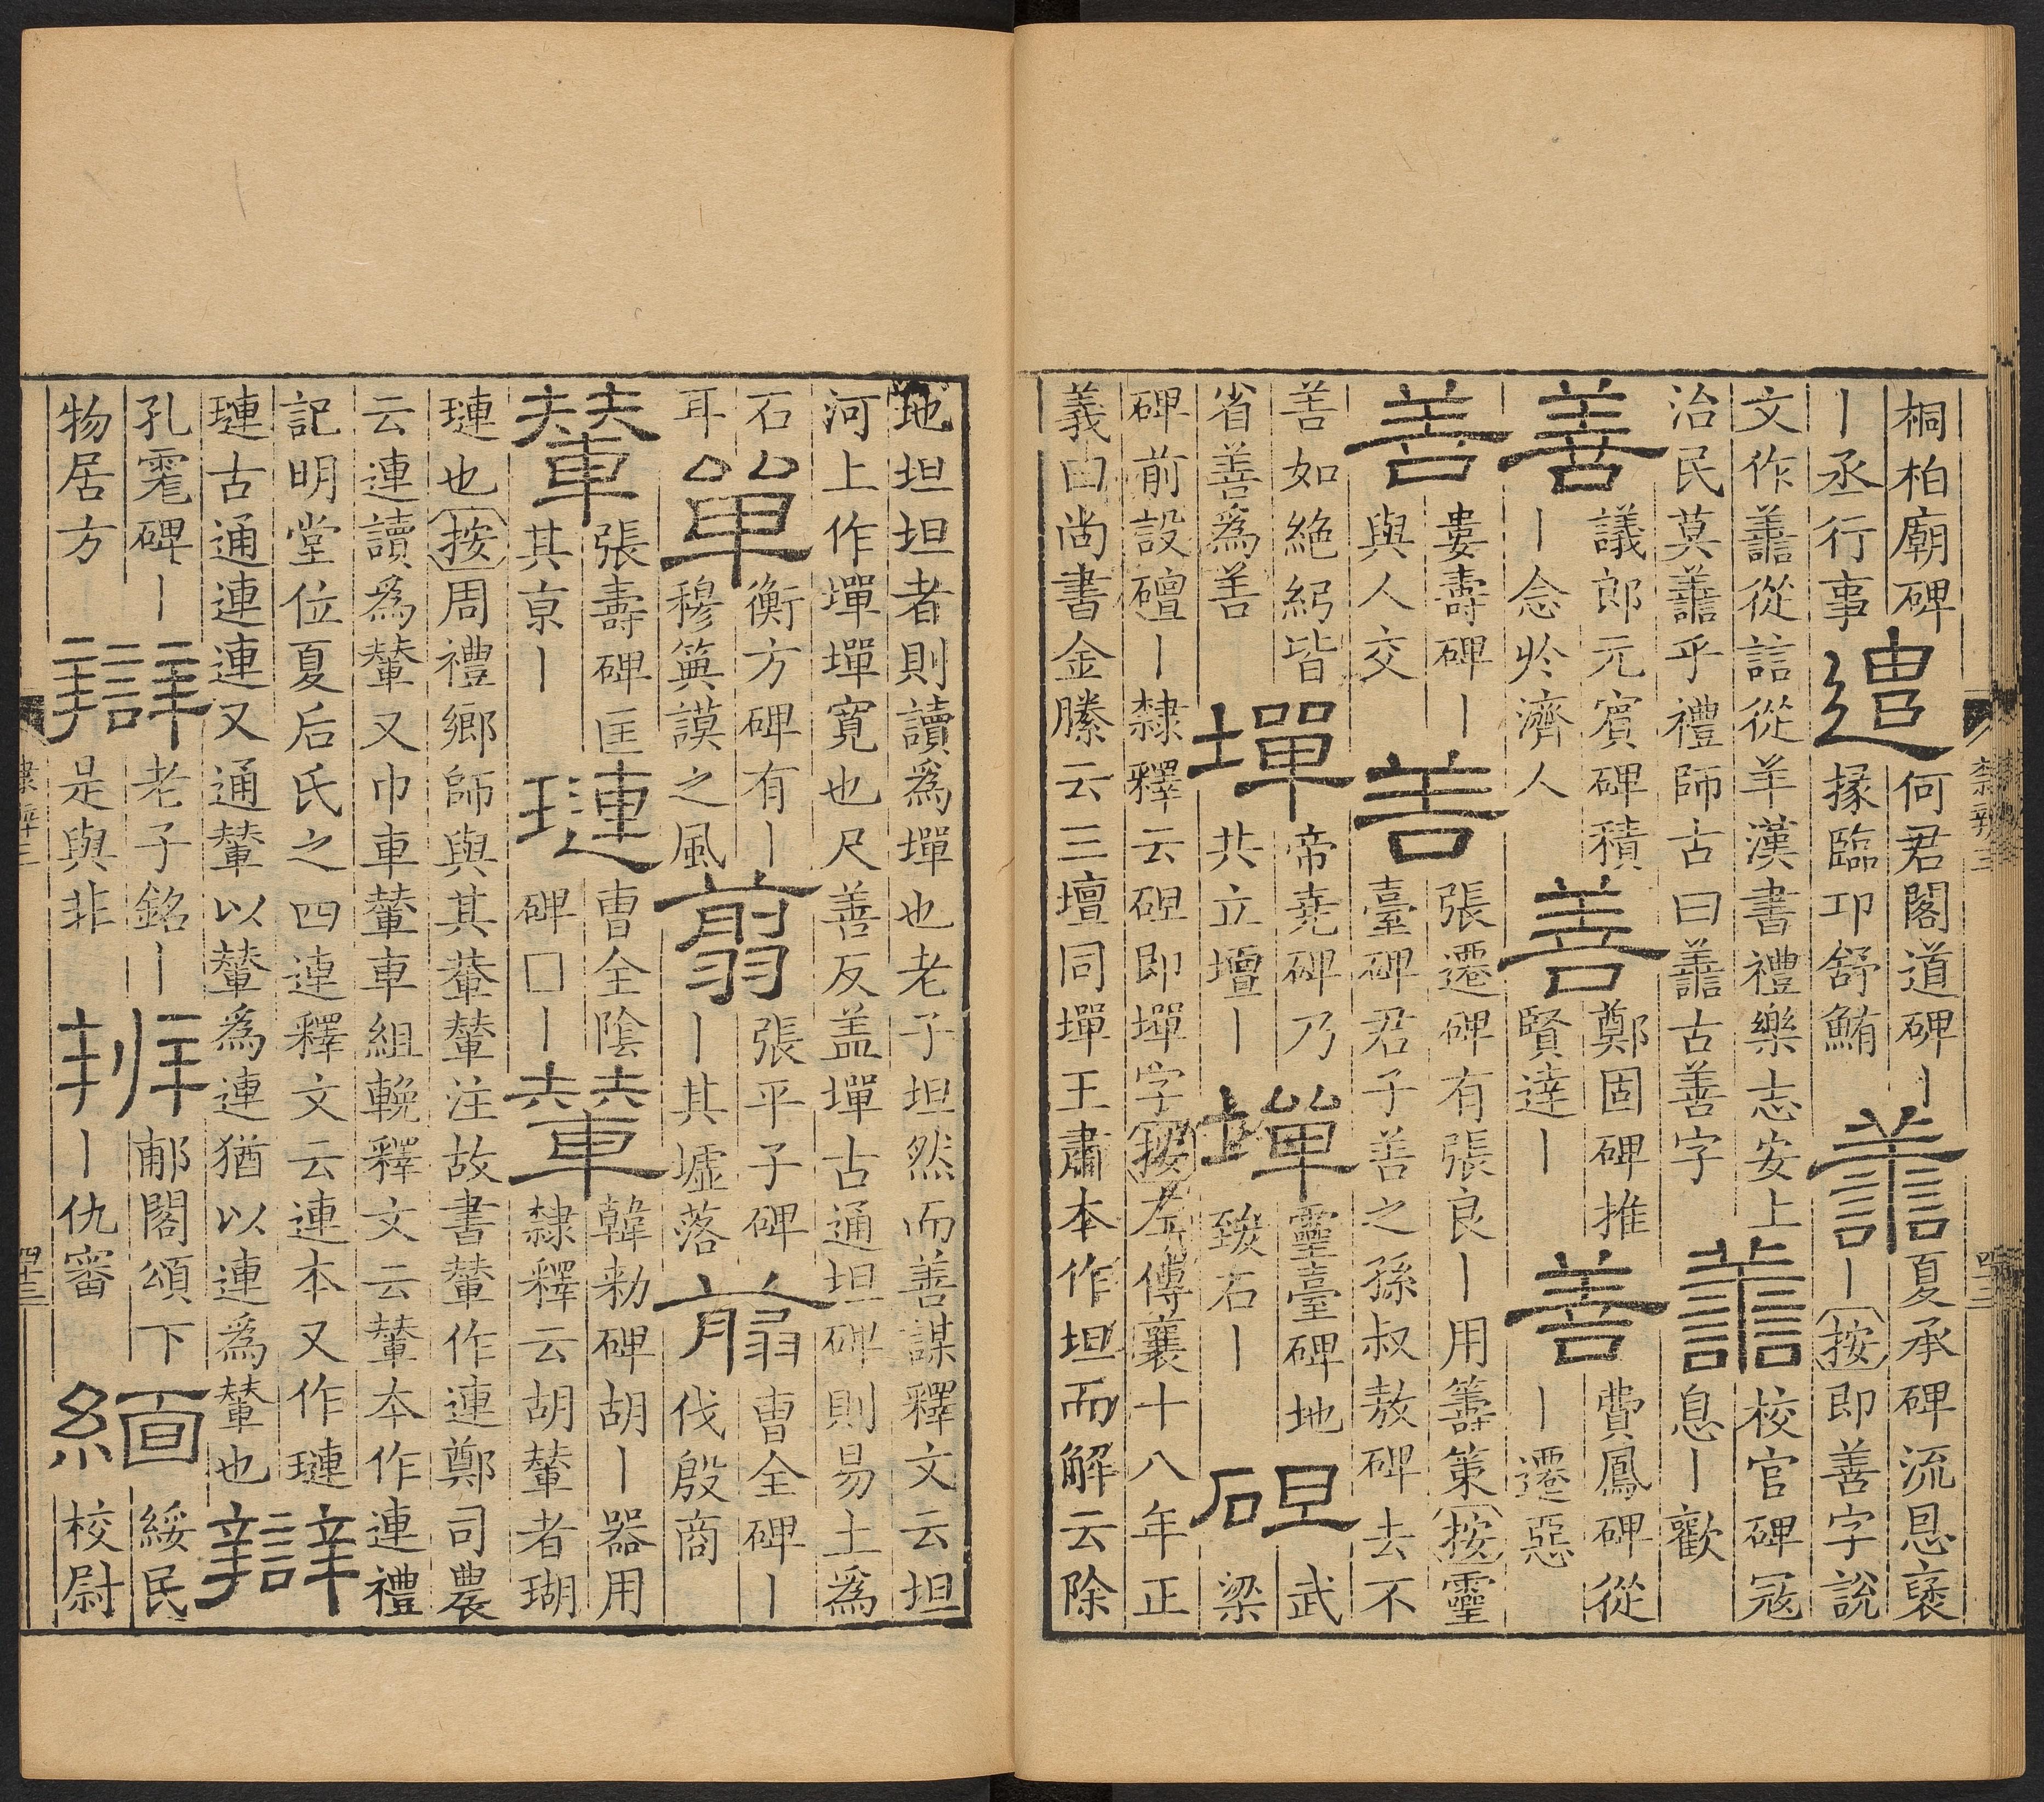 桐柏廟碑
丨丞行事
遣
何君閣道碑丨
掾臨邛舒鮪
譱
夏承碑流恩褒
丨按即善字說
文作譱從誩從羊漢書禮樂志安上
治民莫譱乎禮師古曰譱古善字
譱
校官碑寇
息丨歡
善
議郎元賓碑積
丨念於濟人
善
鄭固碑推
賢達丨
善
費鳳碑從
丨遷惡
善
婁壽碑丨
與人交
善
張遷碑有張良丨用籌策按靈
臺碑君子善之孫叔敖碑去不
善如絶紀皆
省善為
墠
帝堯碑乃
共立壇丨
墠
靈臺碑地
致石丨
武
梁
碑前設丨隸釋云即墠字按左傳襄十八年正
義曰尚書金縢云三壇同墠王肅本作坦而解云除
隸辨三
四十三
地坦坦者則讀為墠也老子坦然而善謀釋文云坦
河上作墠墠寬也尺善反盖墠古通坦碑則易土為
石
耳
單
衡方碑有丨
穆謨之風
翦
張平子碑
丨其墟落
翦
曹全碑丨
伐殷商
輦
張壽碑匡
其京丨
璉
曹全陰
碑□丨
輦
韓勑碑胡丨器用
隸釋云胡輦者瑚
璉也按周禮鄉師與其輂輦注故書輦作連鄭司農
云連讀為輦又巾車輦車組輓釋文云輦本作連禮
記明堂位夏后氏之四連釋文云連本又作璉
璉古通連連又通輦以輦為連猶以連為輦也
辯
孔碑丨
物居方
辯
老子銘丨
是與非
辨
郙閣頌下
丨仇審
緬
綏民
校尉